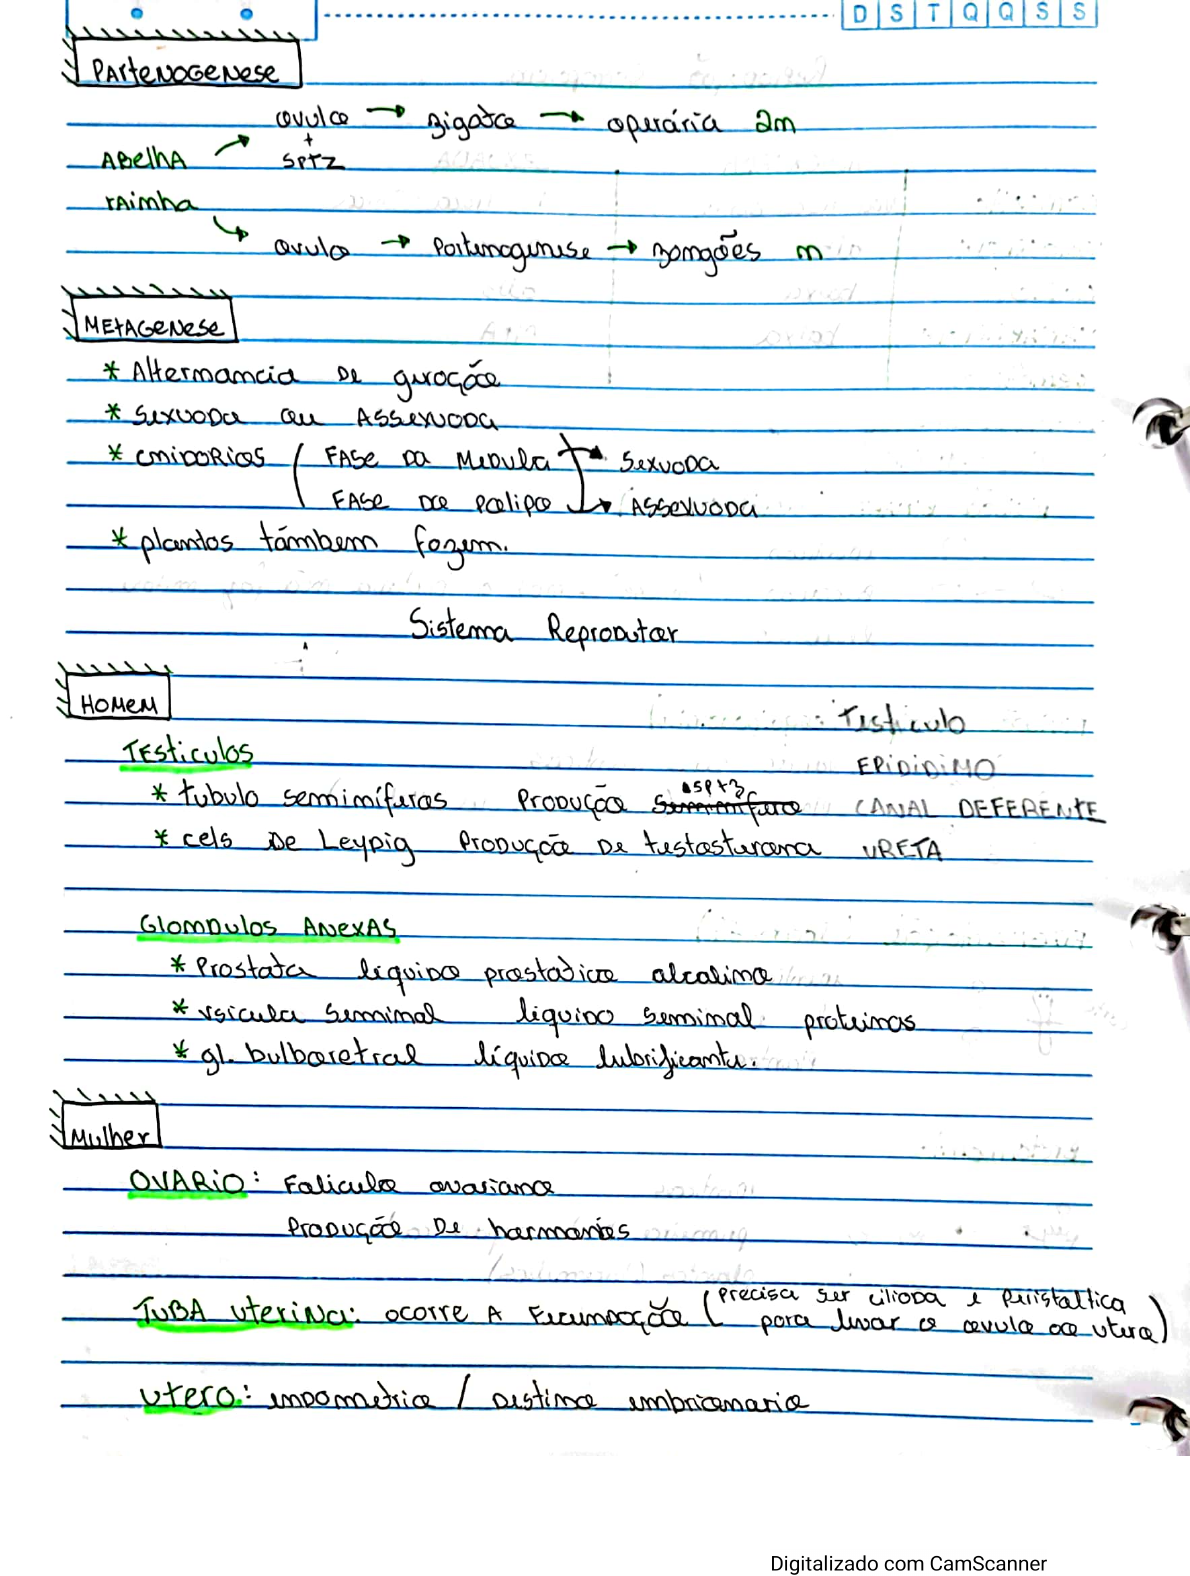 D S T Q Q S S
PARTENOGENESE
ovulo → zigoto → operária 2m
+
ABELHA sptz
rainha
ovulo → Partenogenese → zangões m
METAGENESE
* Alternancia DE geração
* sexuada ou ASSexuada
* cnidarios FASE DA MEDULA → Sexuada
FASE DO PÓLIPO → ASSexuada
* plantas támbem fazem.
Sistema Reprodutor
HOMEM
Testiculo
TEsticulos
EPIDIDIMO
* tubulo seminíferos PRODUÇÃO sptz CANAL DEFERENTE
* cels DE Leydig PRODUÇÃO DE testosterona URETA
GLANDULAS ANEXAS
* Prostata líquido prostático alcalino
* vsicula seminal liquido seminal proteinas
* gl. bulboretral líquido lubrificante.
Mulher
OVARIO: Foliculo ovariano
PRODUÇÃO DE hormonios
TUBA uterina: ocorre A Fecundação (precisa ser ciliada e peristaltica
para levar o ovulo ao utero)
utero: endometrio / Destino embrionario
Digitalizado com CamScanner